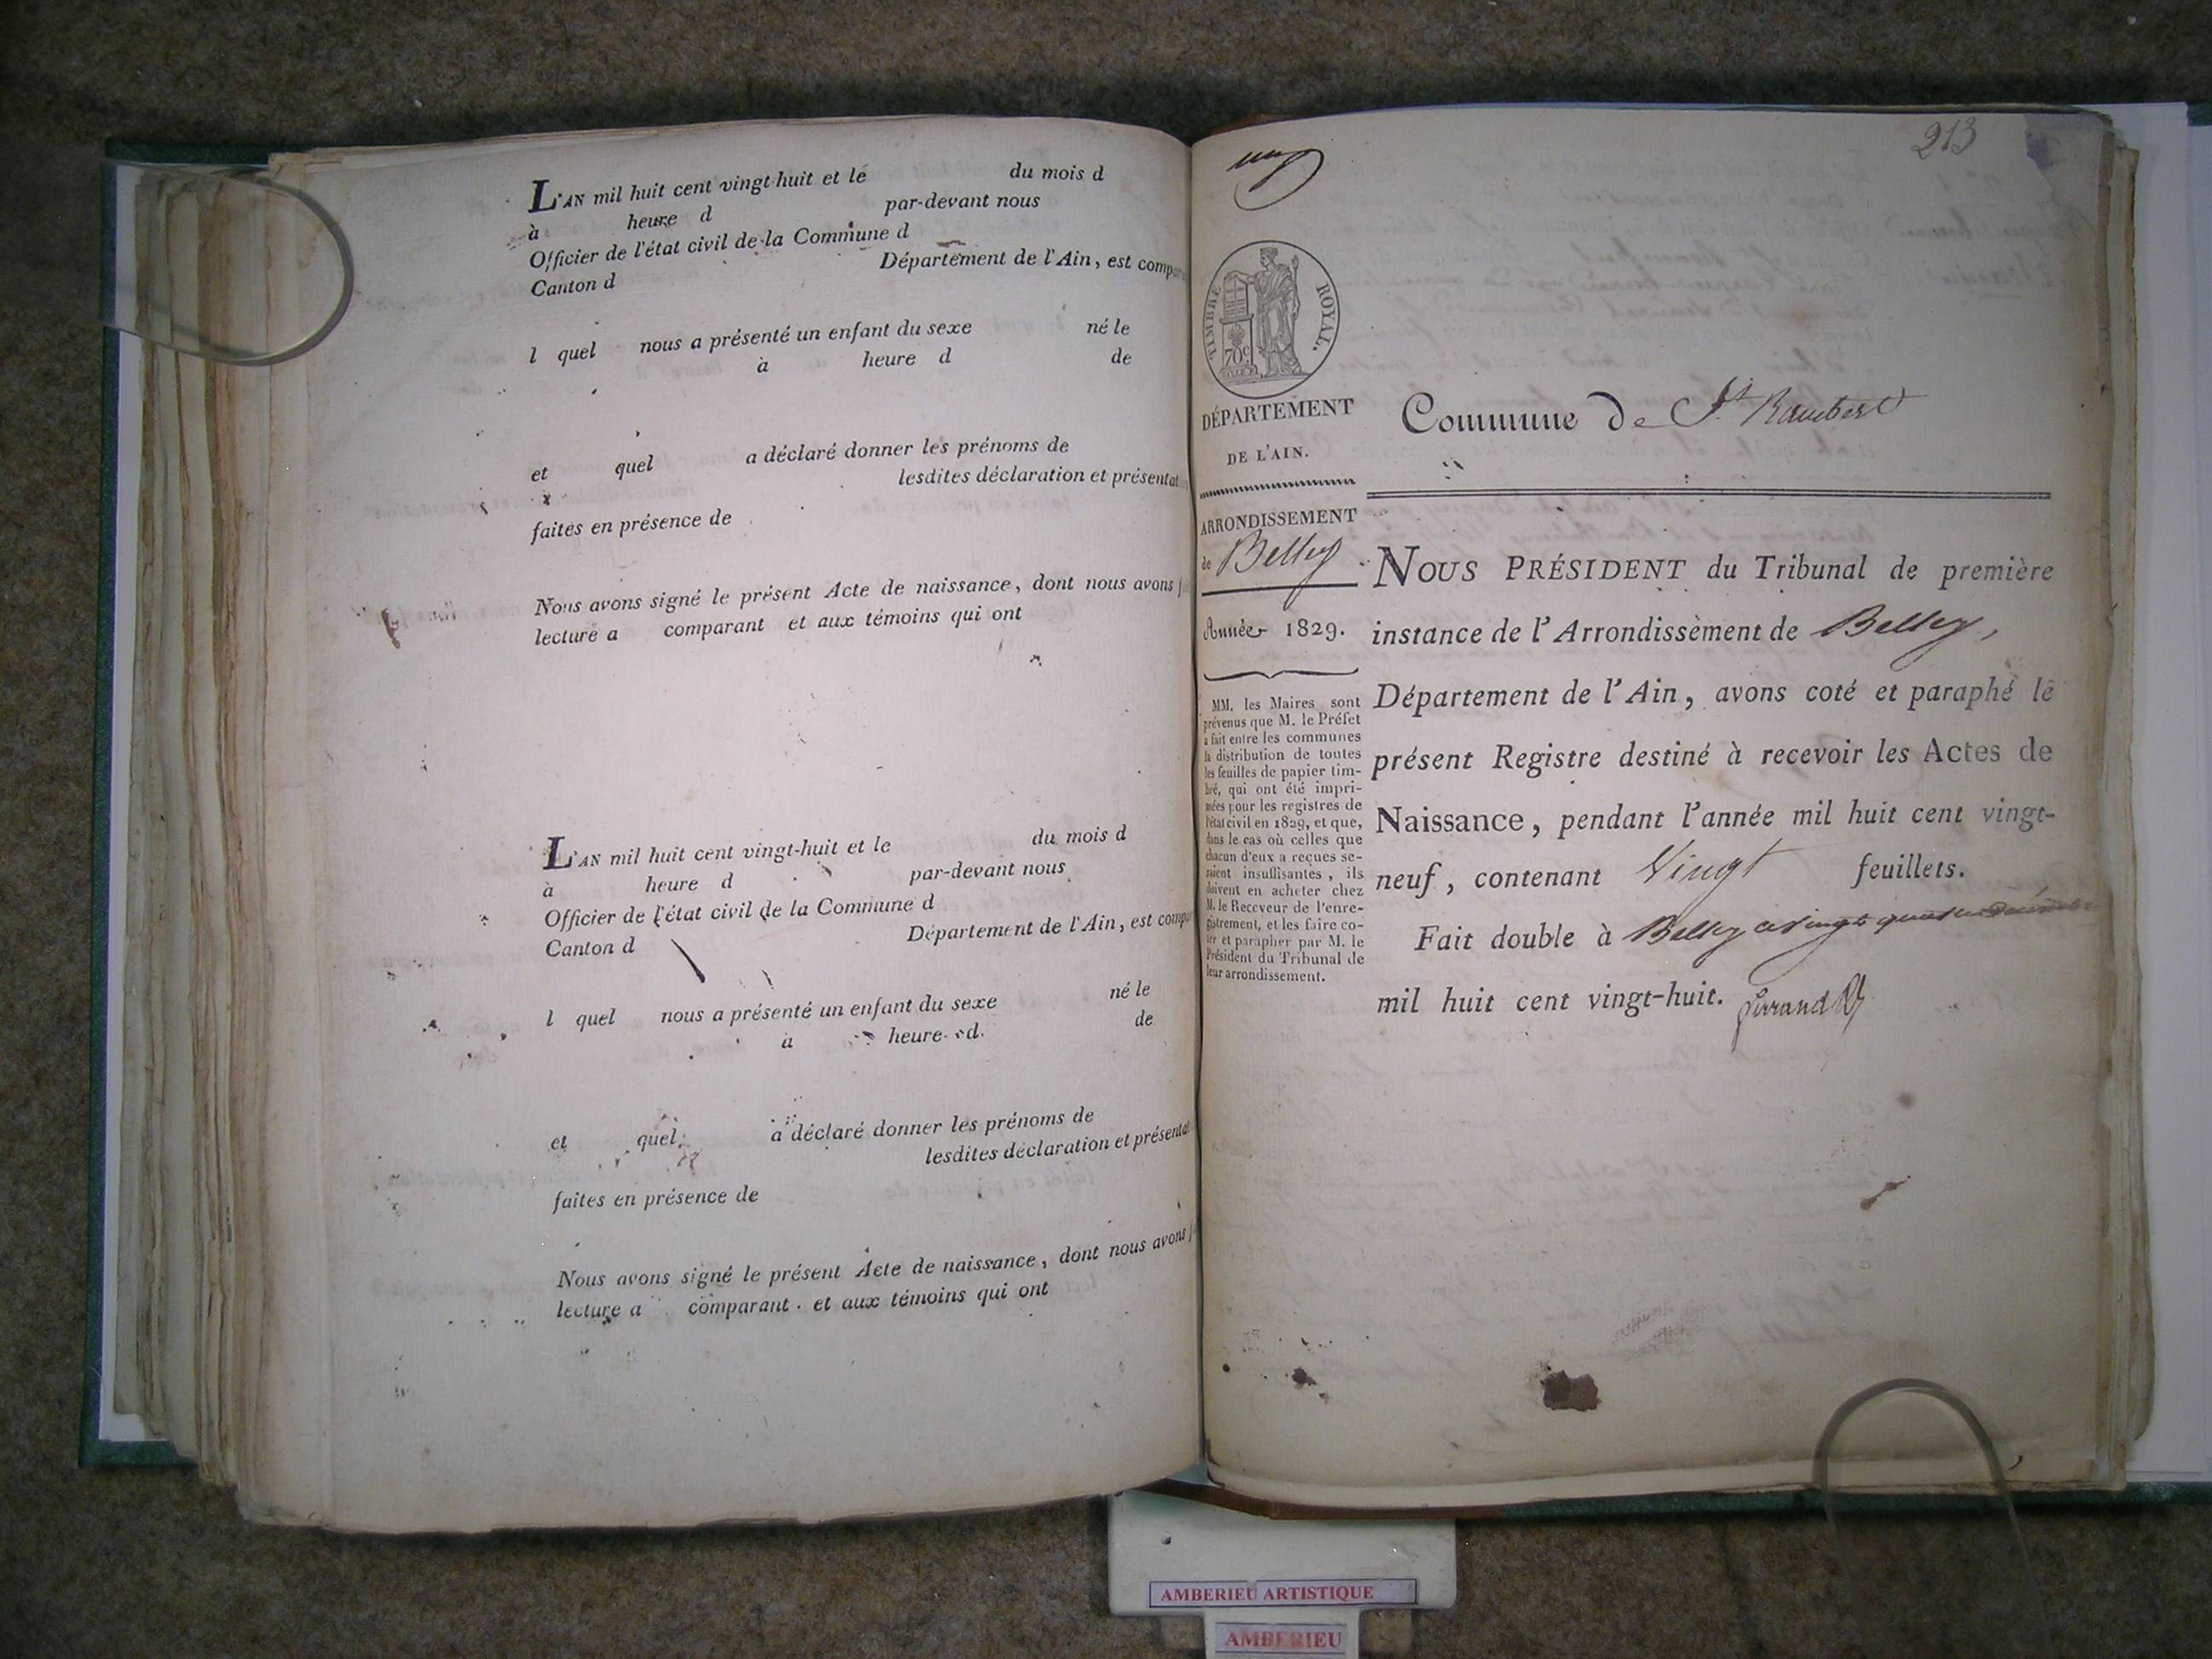 L'AN mil huit cent vingt-huit et le du mois d
à heure d par-devant nous
Officier de l'état civil de la Commune d
Canton d Département de l'Ain, est compar
l quel nous a présenté un enfant du sexe né le
à heure d de
et quel a déclaré donner les prénoms de
lesdites déclaration et présentat
faites en présence de
Nous avons signé le présent Acte de naissance, dont nous avons
lecture a comparant et aux témoins qui ont
L'AN mil huit cent vingt-huit et le du mois d
à heure d par-devant nous
Officier de l'état civil de la Commune d
Canton d Département de l'Ain, est compar
l quel nous a présenté un enfant du sexe né le
à heure d. de
et quel a déclaré donner les prénoms de
lesdites déclaration et présentat
faites en présence de
Nous avons signé le présent Acte de naissance, dont nous avons
lecture a comparant et aux témoins qui ont
213
TIMBRE ROYAL.
70c
DÉPARTEMENT
DE L'AIN.
ARRONDISSEMENT
de Belley
Année 1829.
MM. les Maires sont
prévenus que M. le Préfet
a fait entre les communes
la distribution de toutes
les feuilles de papier tim-
bré, qui ont été impri-
mées pour les registres de
l'état civil en 1829, et que,
dans le cas où celles que
chacun d'eux a reçues se-
raient insuffisantes, ils
doivent en acheter chez
M. le Receveur de l'enre-
gistrement, et les faire co-
ter et parapher par M. le
Président du Tribunal de
leur arrondissement.
Commune de St Rambert
NOUS PRÉSIDENT du Tribunal de première
instance de l'Arrondissement de Belley,
Département de l'Ain, avons coté et paraphé le
présent Registre destiné à recevoir les Actes de
Naissance, pendant l'année mil huit cent vingt-
neuf, contenant Vingt feuillets.
Fait double à Belley ce vingt quatre décembre
mil huit cent vingt-huit.
AMBERIEU ARTISTIQUE
AMBERIEU